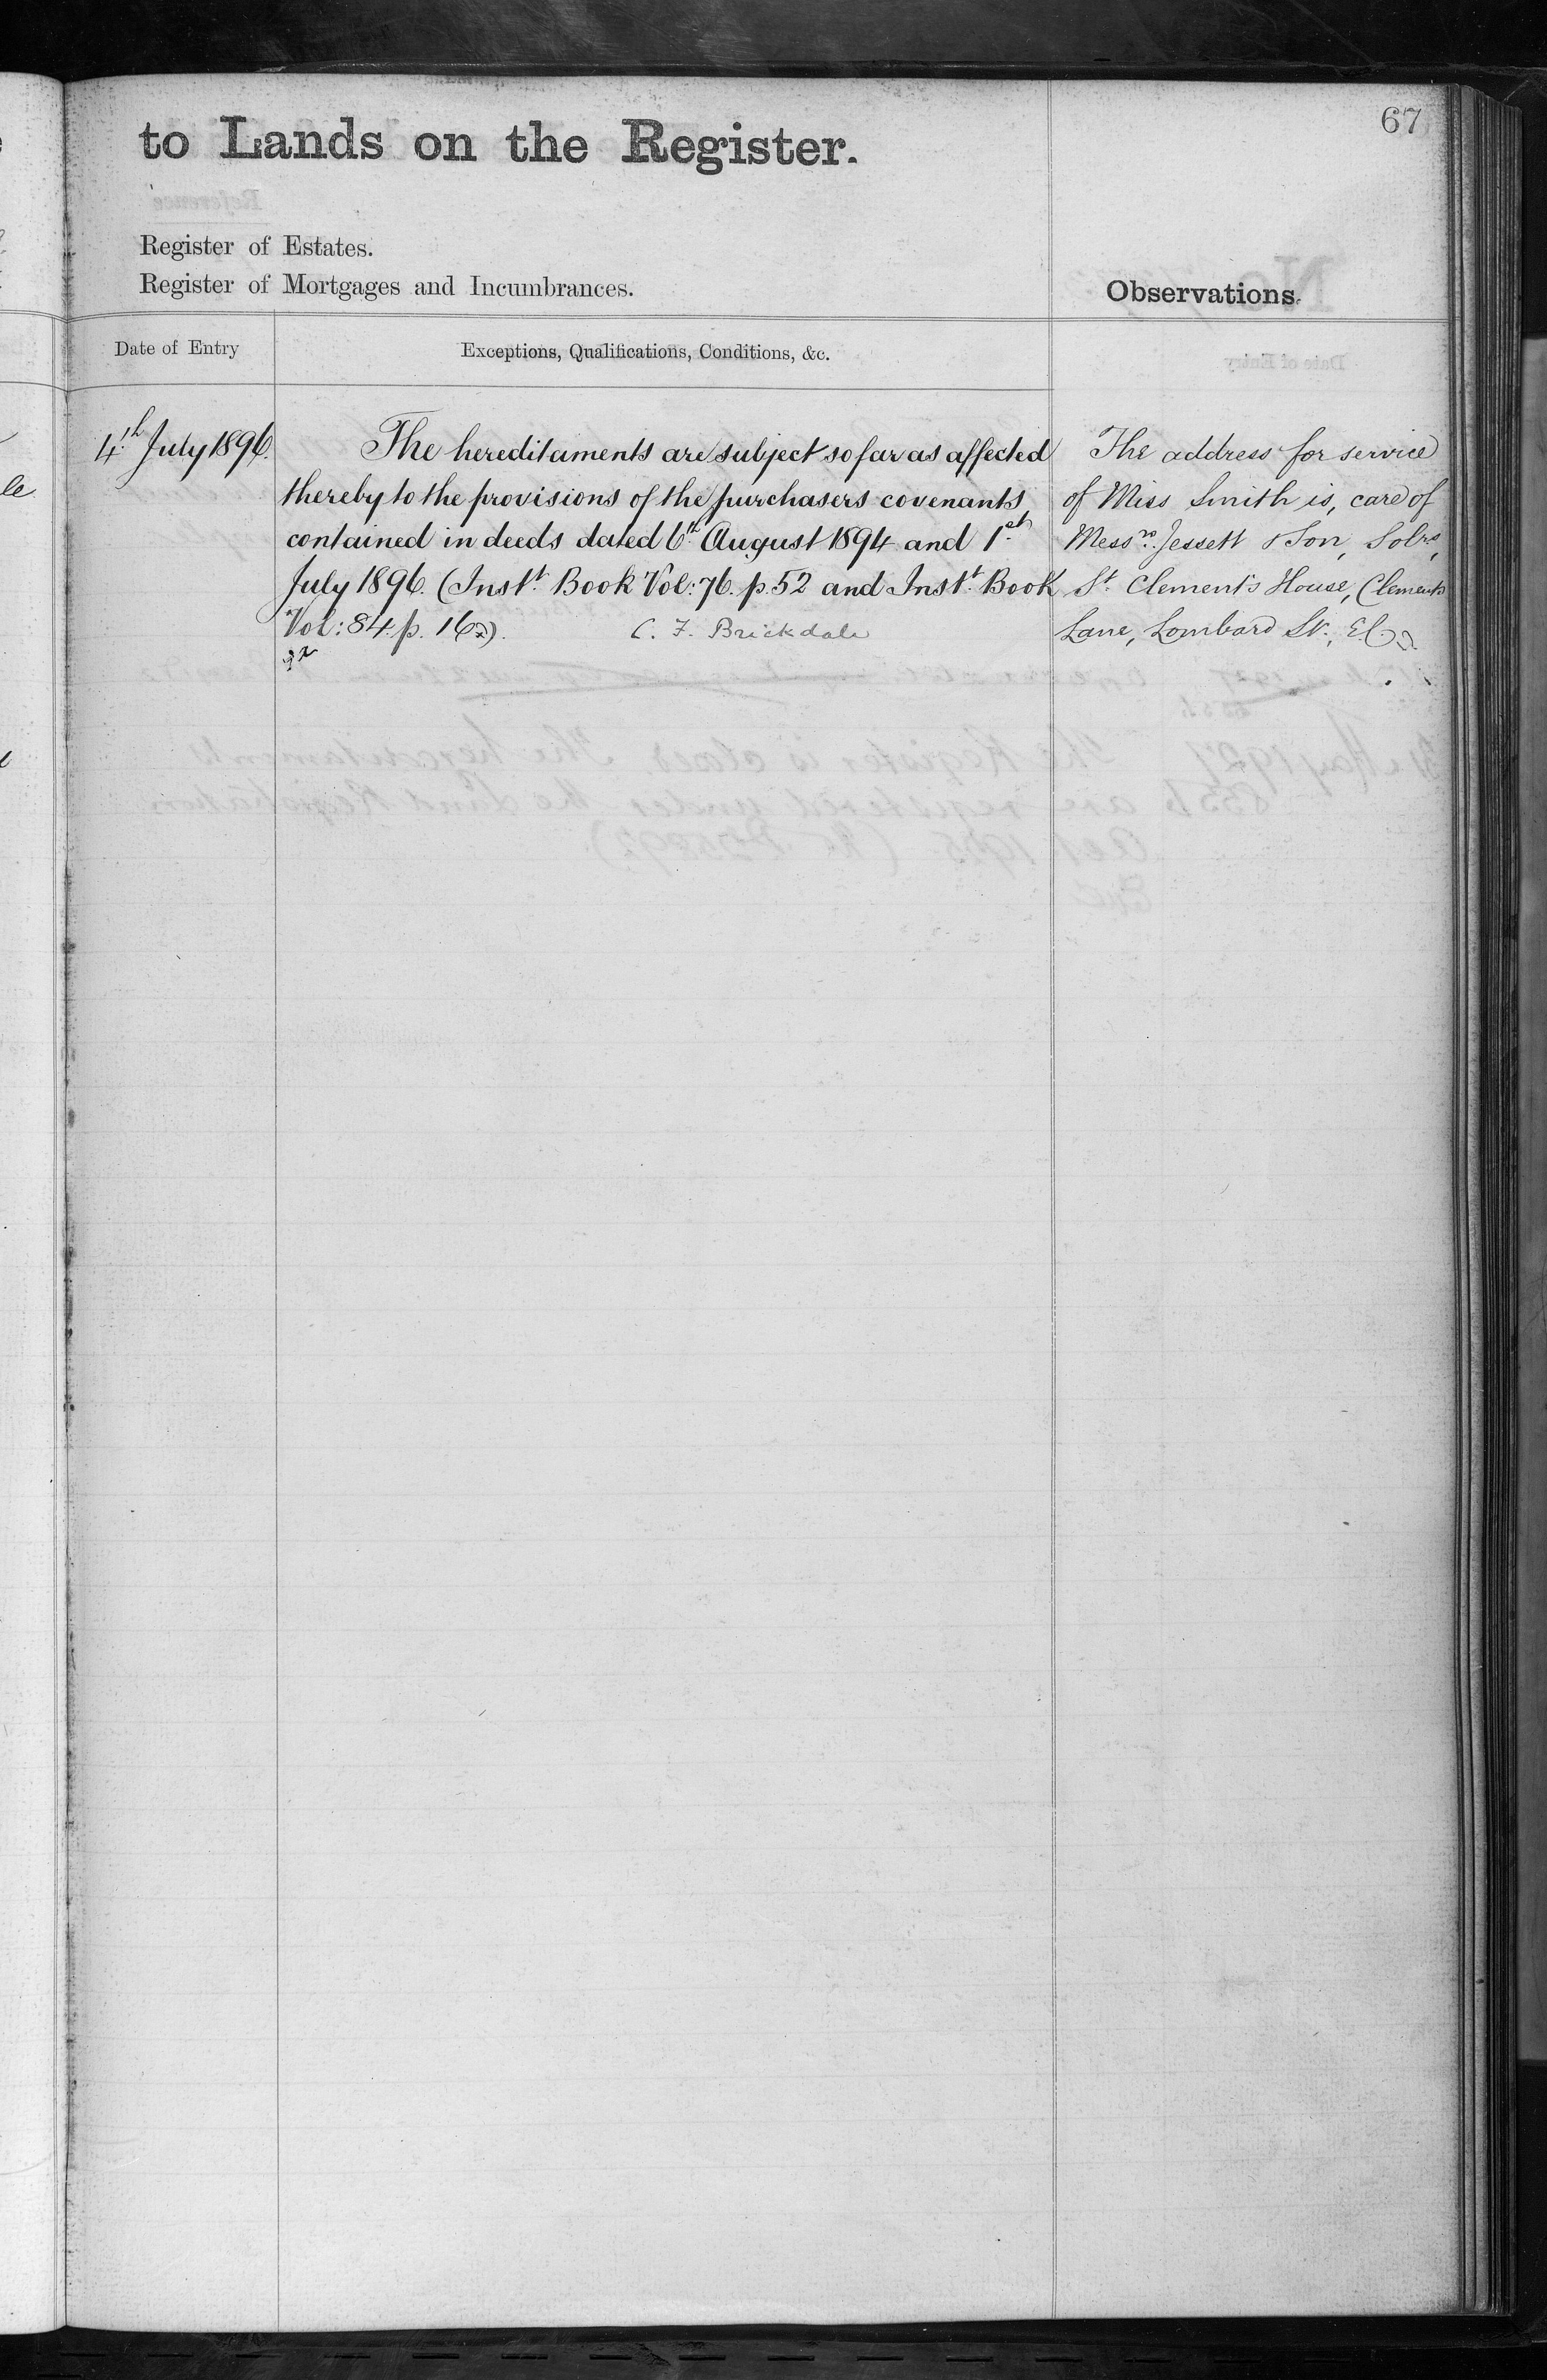 67
to Lands on the Register.
Register of Estates.
Register of Mortgages and Incumbrances.
Observations.
Date of Entry
Exceptions, Qualifications, Conditions, &c.
4th July 1896.
The hereditaments are subject so far as affected
thereby to the provisions of the purchasers covenants
contained in deeds dated 6th August 1894 and 1st
July 1896. (Instt. Book Vol: 76. p. 52 and Instt. Book
Vol: 84. p. 16).
C. F. Brickdale
The address for service
of Miss Smith is, care of
Messrs. Jessett & Son, Solrs,
St. Clement's House, Clements
Lane, Lombard St., E.C.